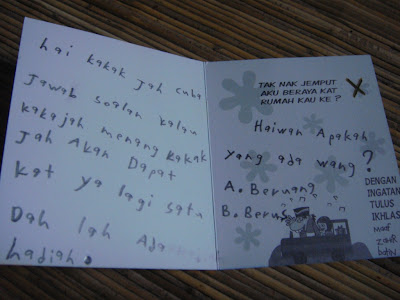 hai kakak jah cuba
jawab soalan kalau
kakajah menang kakak
jah Akan Dapat
kat ya lagi satu
Dah lah Ada
hadiah.
TAK NAK JEMPUT
AKU BERAYA KAT
RUMAH KAU KE ?
X
Haiwan Apakah
yang ada wang?
A. Beruang
B. Berus
DENGAN
INGATAN
TULUS
IKHLAS
maaf
zahir
batin